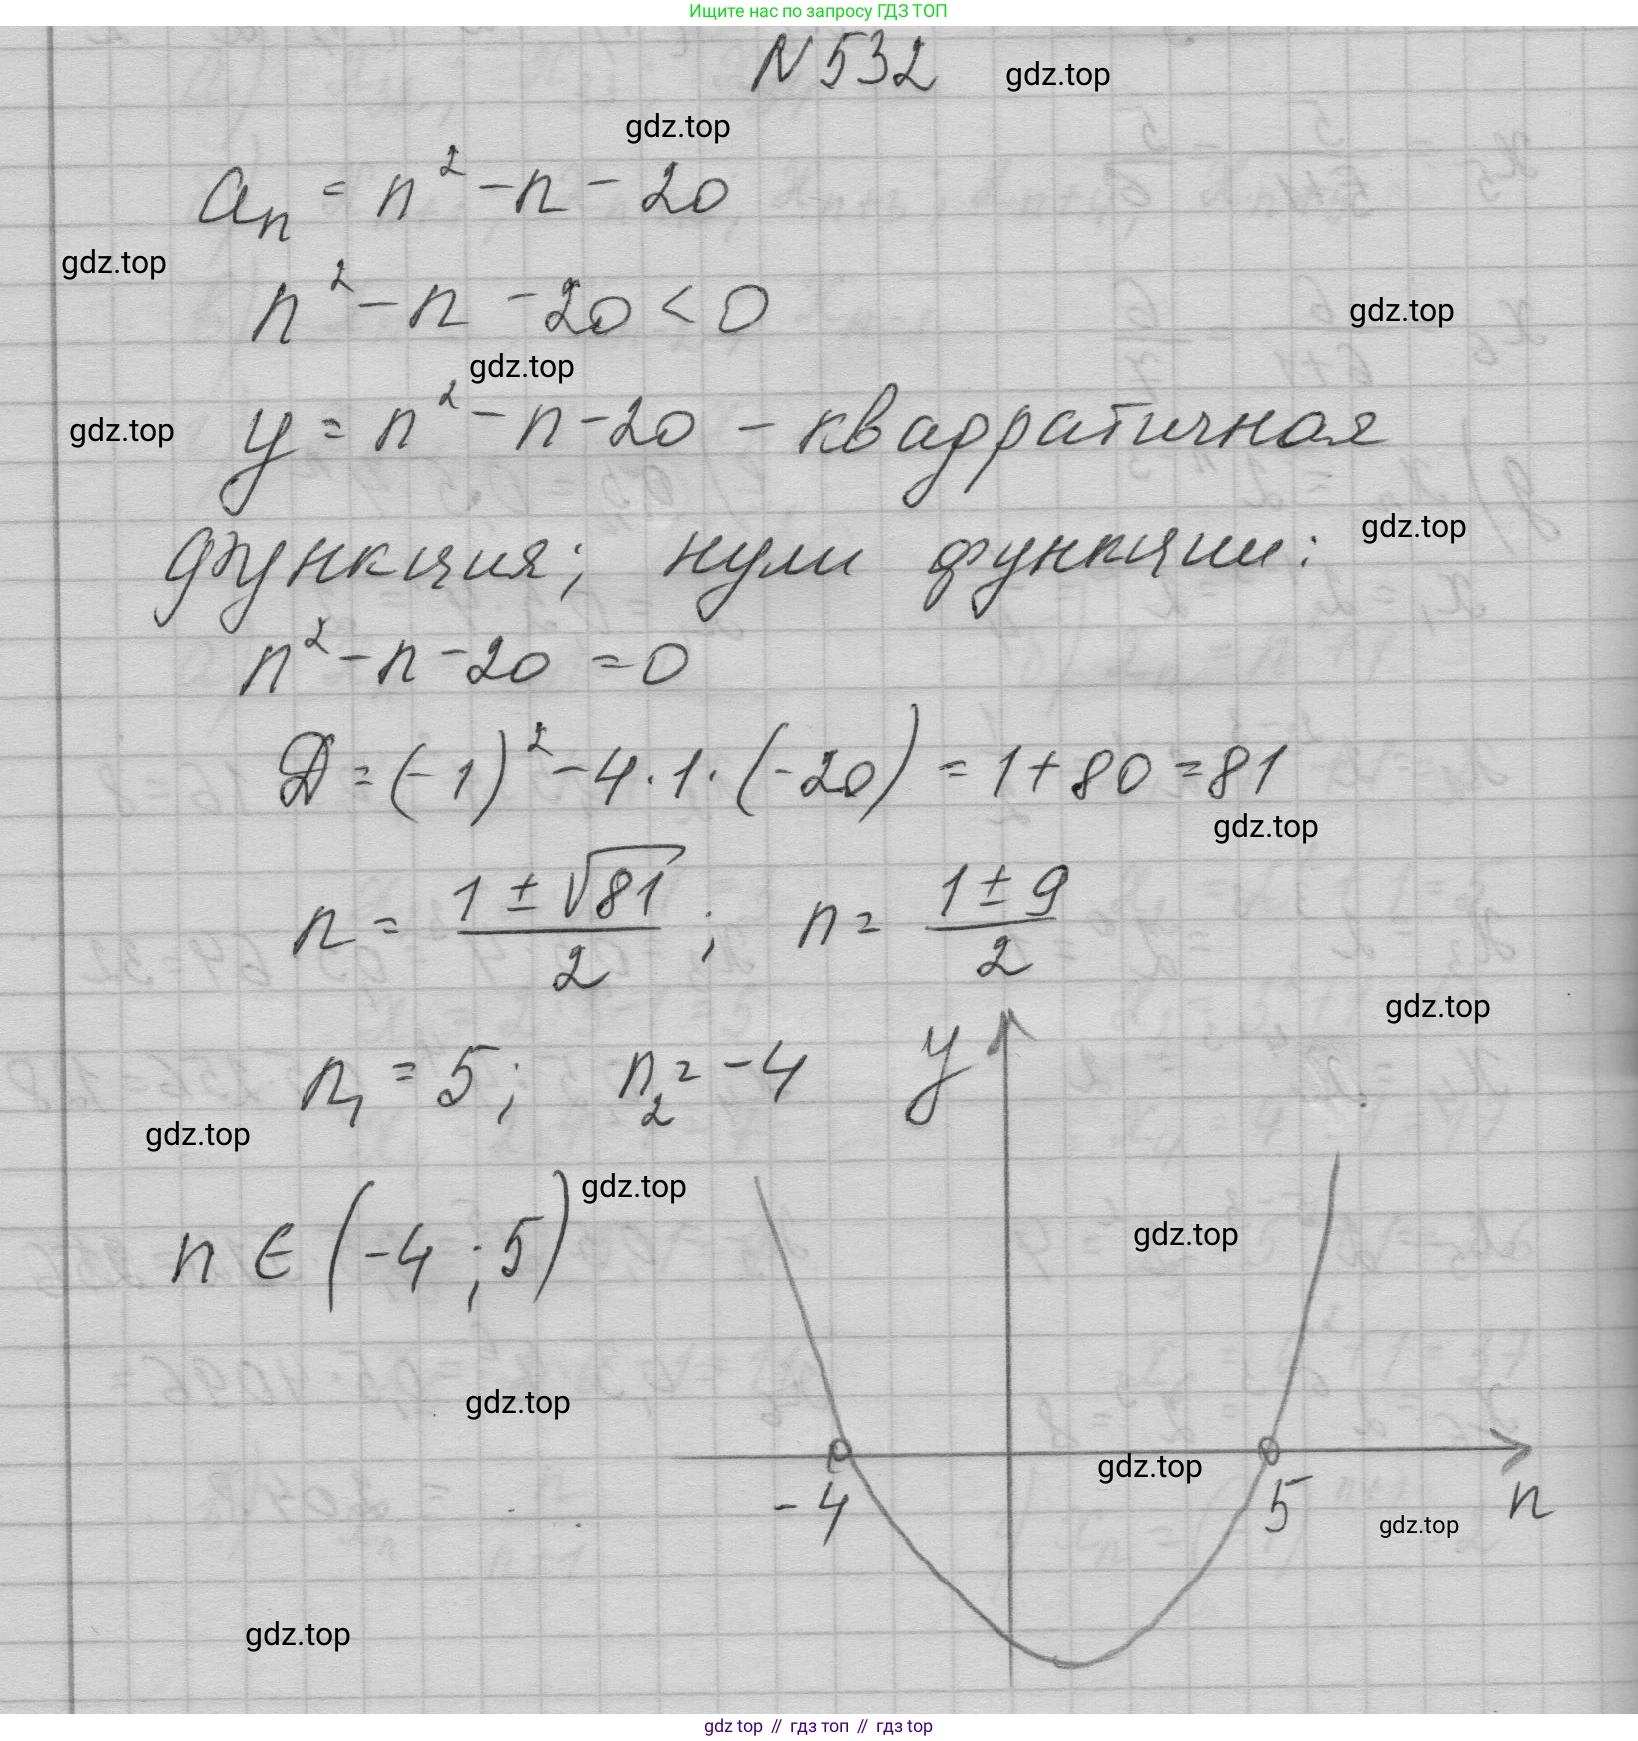 Ищите нас по запросу ГДЗ ТОП
N 532
gdz.top
gdz.top
aₙ = n² - n - 20
gdz.top
n² - n - 20 < 0
gdz.top
gdz.top
gdz.top
y = n² - n - 20 - квадратичная
gdz.top
функция; нули функции:
n² - n - 20 = 0
D = (-1)² - 4 · 1 · (-20) = 1 + 80 = 81
gdz.top
n = (1 ± √81)/2 ; n = (1 ± 9)/2
gdz.top
n₁ = 5; n₂ = -4
y
gdz.top
gdz.top
gdz.top
n ∈ (-4; 5)
gdz.top
gdz.top
-4
5
n
gdz.top
gdz.top
gdz top // гдз топ // гдз top